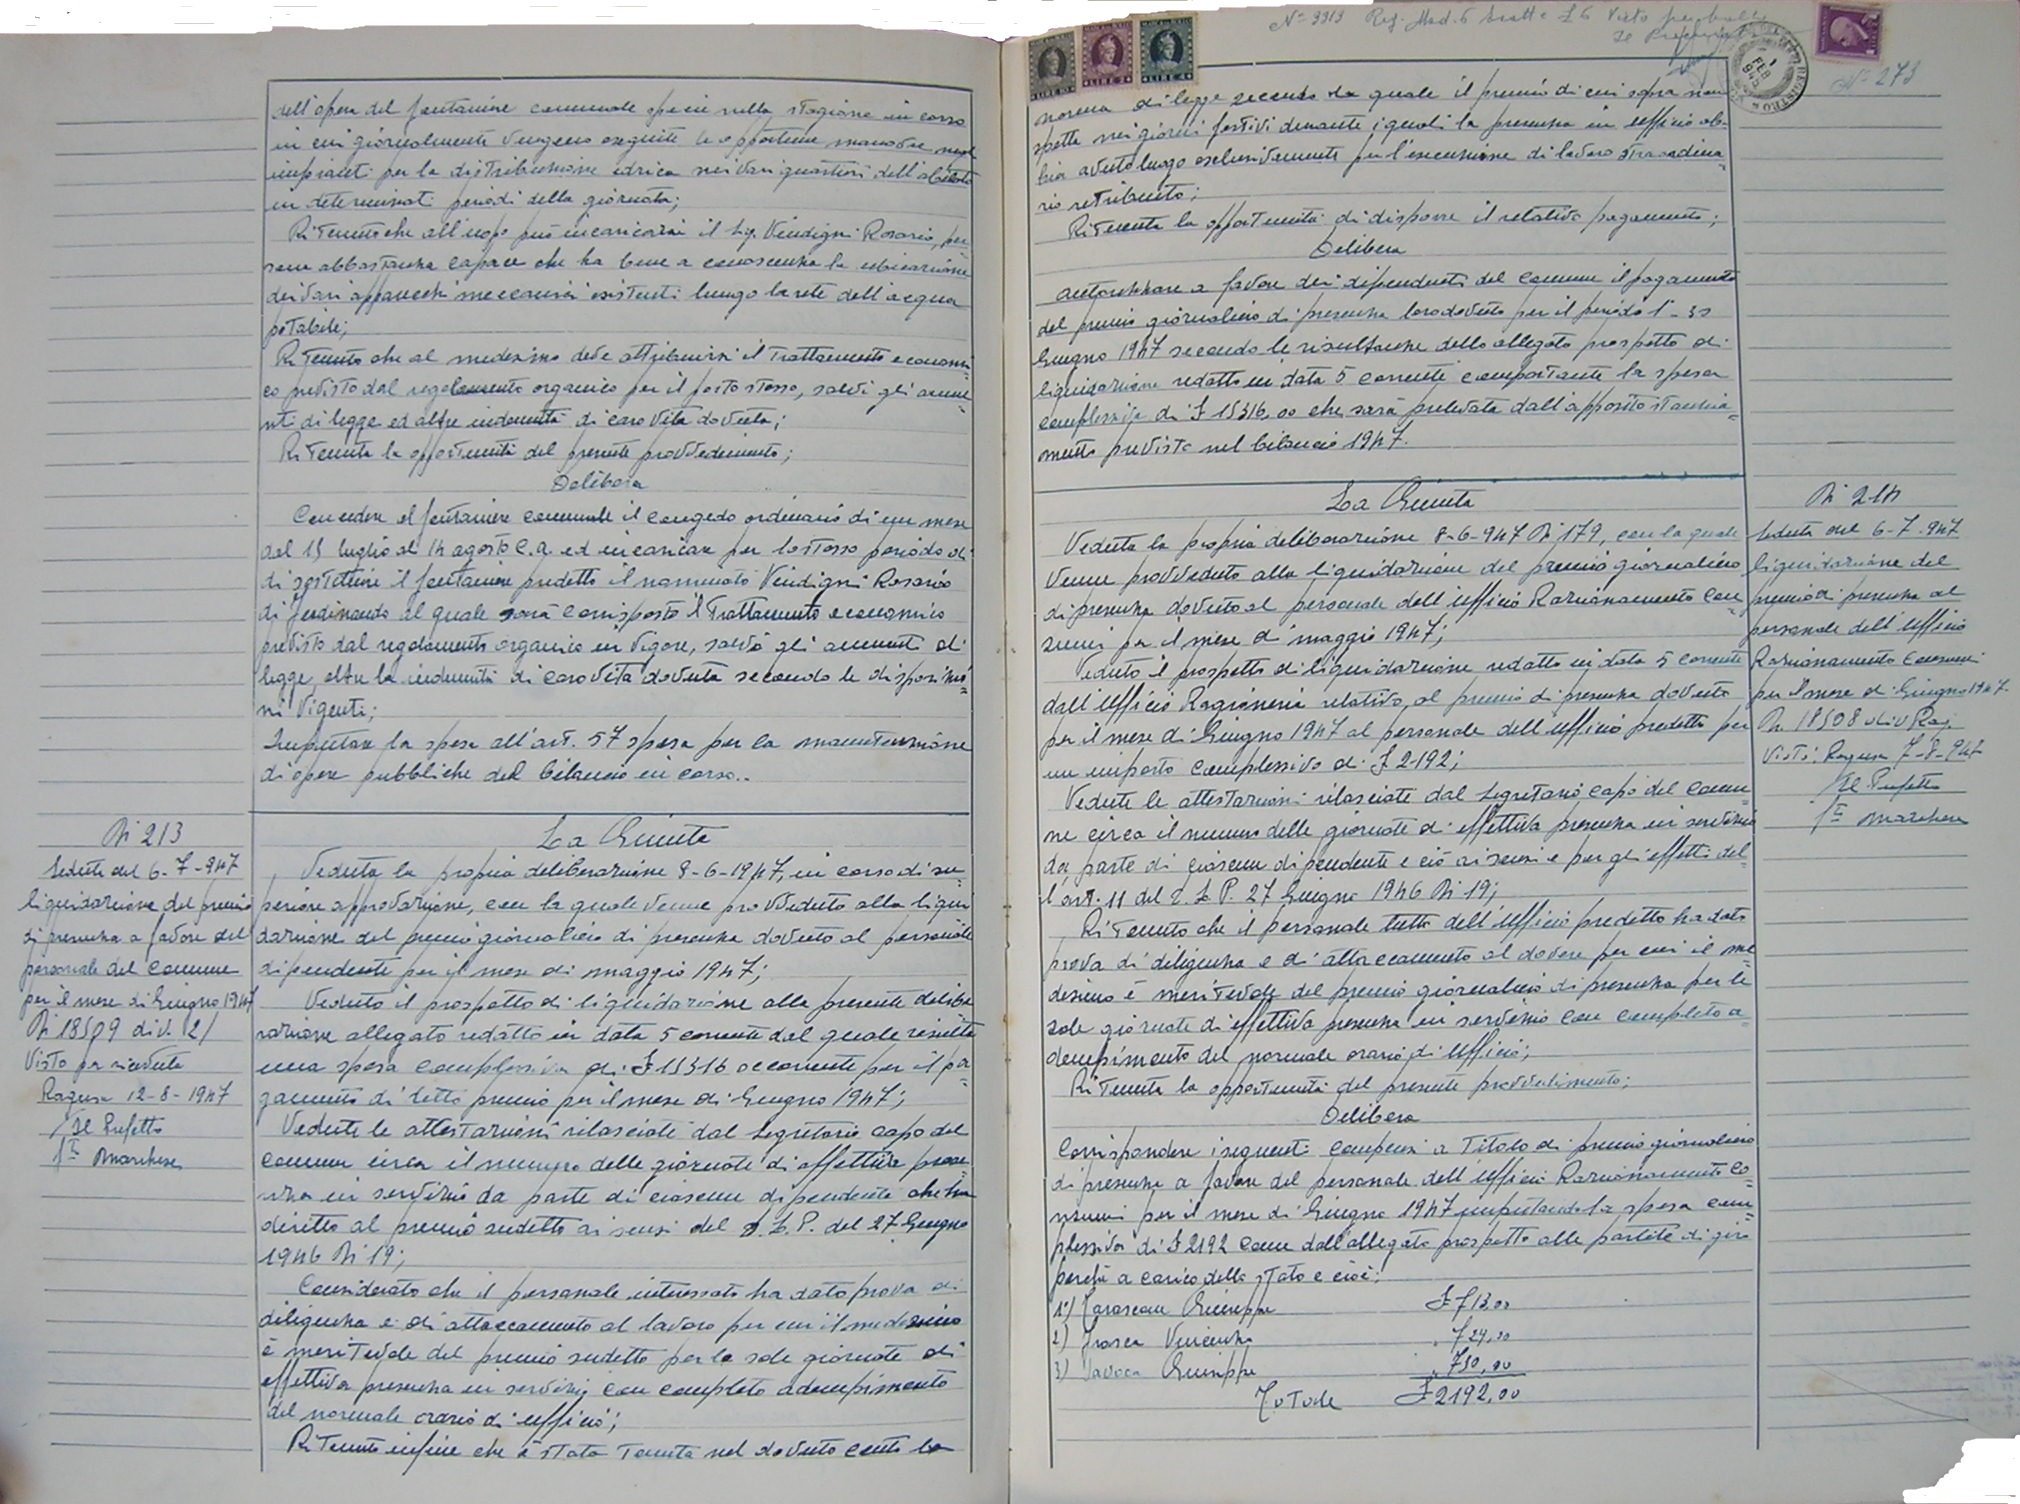 dell'opera del fontaniere comunale specie nella stagione in corso
in cui giornalmente vengono eseguite le opportune manovre negli
impianti per la distribuzione idrica nei vari quartieri dell'abitato
in determinati periodi della giornata;
Ritenuto che all'uopo può incaricarsi il Sig. Vindigni Rosario, per
sona abbastanza capace che ha bene a conoscenza la ubicazione
dei vari apparecchi meccanici esistenti lungo la rete dell'acqua
potabile;
Ritenuto che al medesimo deve attribuirsi il trattamento economi
co previsto dal regolamento organico per il posto stesso, salvi gli aume
nti di legge ed altre indennità di caro vita dovuta;
Ritenuta la opportunità del presente provvedimento;
Delibera
Concedere al fontaniere comunale il congedo ordinario di un mese
dal 15 luglio al 14 agosto c.a. ed incaricare per lo stesso periodo di
di sostituire il fontaniere predetto il nominato Vindigni Rosario
di Ferdinando al quale sarà corrisposto il trattamento economico
previsto dal regolamento organico in vigore, salvo gli aumenti di
legge, oltre la indennità di caro vita dovuta secondo le disposizio=
ni vigenti;
Imputare la spesa all'art. 57 spesa per la manutenzione
di opere pubbliche del bilancio in corso..
N 213
Seduta del 6-7-947
liquidazione del premio
di presenza a favore del
personale del Comune
per il mese di Giugno 1947
N 18509 div. 2/
Visto per ricevuta
Ragusa 12-8-1947
Il Prefetto
Fto Marchese
La Giunta
Veduta la propria deliberazione 8-6-1947, in corso di su=
periore approvazione, con la quale venne provveduto alla liqui
dazione del premio giornaliero di presenza dovuto al personale
dipendente per il mese di maggio 1947;
Veduto il prospetto di liquidazione alla presente delibe
razione allegato redatto in data 5 corrente dal quale risulta
una spesa complessiva di £ 15316 occorrente per il pa=
gamento di detto premio per il mese di Giugno 1947;
Vedute le attestazioni rilasciate dal Segretario capo del
Comune circa il numero delle giornate di effettiva prese=
nza in servizio da parte di ciascun dipendente che ha
diritto al premio sudetto ai sensi del D.L.P. del 27 Giugno
1946 N 19;
Considerato che il personale interessato ha dato prova di
diligenza e di attaccamento al lavoro per cui il medesimo
è meritevole del premio sudetto per le sole giornate di
effettiva presenza in servizio con completo adempimento
del normale orario di ufficio;
Ritenuto infine che è stata tenuta nel dovuto conto la
Nº 9919
Nº 273
norma di legge secondo la quale il premio di cui sopra non
spetta nei giorni festivi durante i quali la presenza in ufficio ab=
bia avuto luogo esclusivamente per l'esecuzione di lavoro straordina=
rio retribuito;
Ritenuta la opportunità di disporre il relativo pagamento;
Delibera
Autorizzare a favore dei dipendenti del Comune il pagamento
del premio giornaliero di presenza loro dovuto per il periodo 1-30
Giugno 1947 secondo le risultanze dello allegato prospetto di
liquidazione redatto in data 5 corrente comportante la spesa
complessiva di £ 15316,00 che sarà prelevata dall'apposito stanzia=
mento previsto nel bilancio 1947.
La Giunta
Veduta la propria deliberazione 8-6-947 N 179, con la quale
venne provveduto alla liquidazione del premio giornaliero
di presenza dovuto al personale dell'Ufficio Razionamento Con=
sumi per il mese di maggio 1947;
Veduto il prospetto di liquidazione redatto in data 5 corrente
dall'Ufficio Ragioneria relativo, al premio di presenza dovuto
per il mese di Giugno 1947 al personale dell'ufficio predetto per
un importo complessivo di £ 2192;
Vedute le attestazioni rilasciate dal Segretario capo del Comu=
ne circa il numero delle giornate di effettiva presenza in servizio
da parte di ciascun dipendente e ciò ai sensi e per gli effetti del=
l'art. 11 del D.L.P. 27 Giugno 1946 N 19;
Ritenuto che il personale tutto dell'Ufficio predetto ha dato
prova di diligenza e di attaccamento al dovere per cui il me=
desimo è meritevole del premio giornaliero di presenza per le
sole giornate di effettiva presenza in servizio con completo a=
dempimento del normale orario di Ufficio;
Ritenuta la opportunità del presente provvedimento;
Delibera
Corrispondere i seguenti compensi a titolo di premio giornaliero
di presenza a favore del personale dell'ufficio Razionamento Co=
nsumi per il mese di Giugno 1947 imputando la spesa com=
plessiva di £ 2192 come dall'allegato prospetto alle partite di giro
perchè a carico dello Stato e cioè:
1º) Giuseppe £ 713,00
2) Frasca Vincenzo " 729,00
3) Giuseppe " 750,00
Totale £ 2192,00
N 214
Seduta del 6-7-947
liquidazione del
premio di presenza al
personale dell'ufficio
Razionamento Consumi
per il mese di Giugno 1947.
N. 18508 div Rag.
Visto: Ragusa 7-8-947
Il Prefetto
Fto Marchese